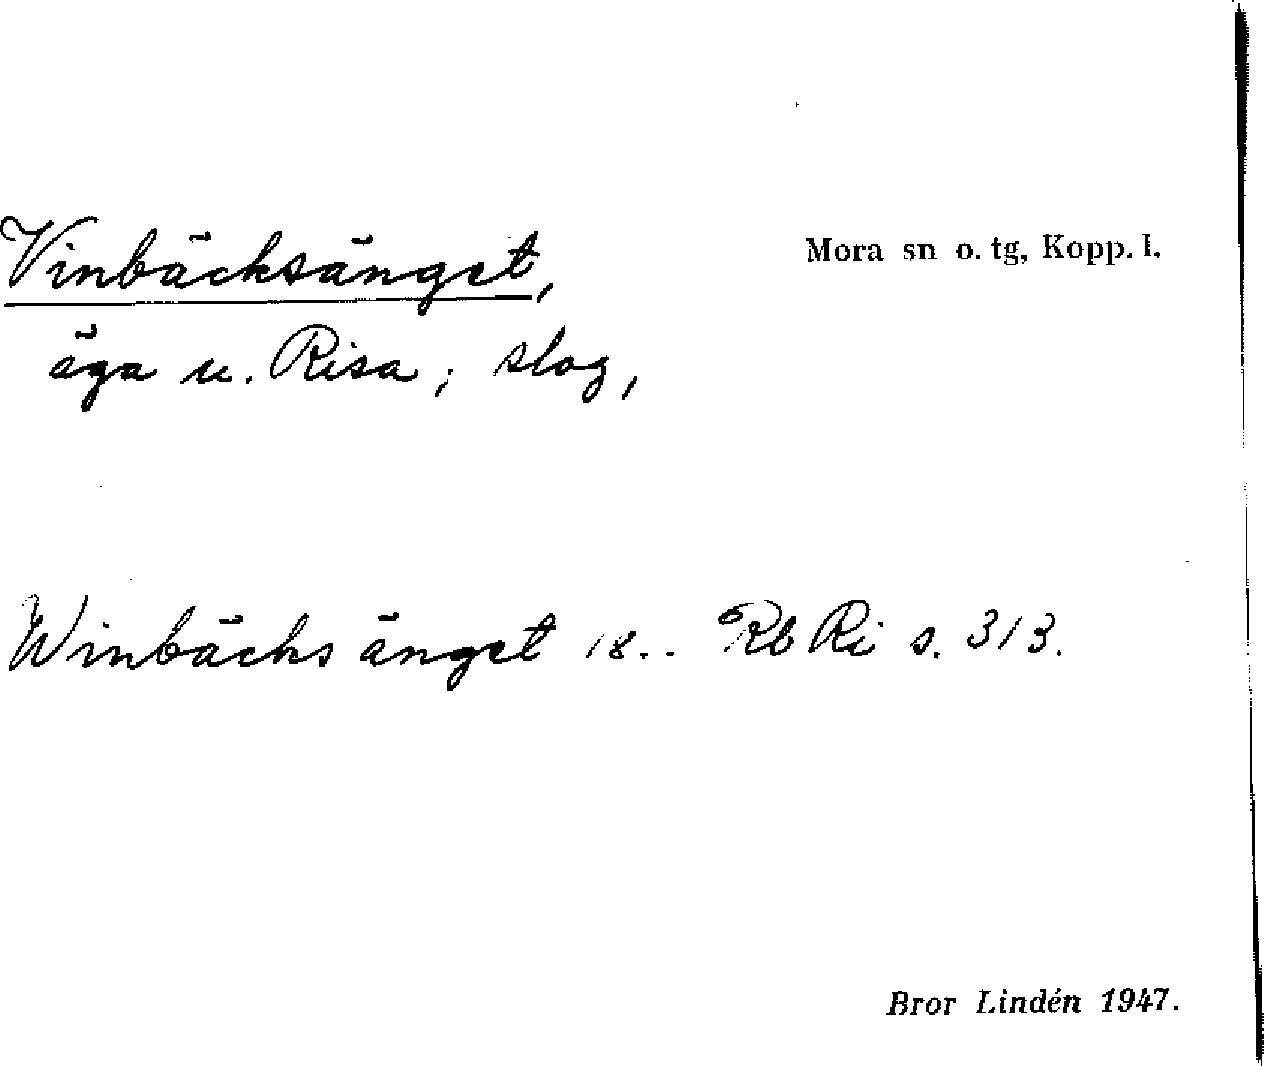 Vinbäcksänget,
Mora sn o. tg, Kopp. l.
äga u. Risa; slog,
Winbäcks änget 18.. Rb Ri s. 313.
Bror Lindén 1947.